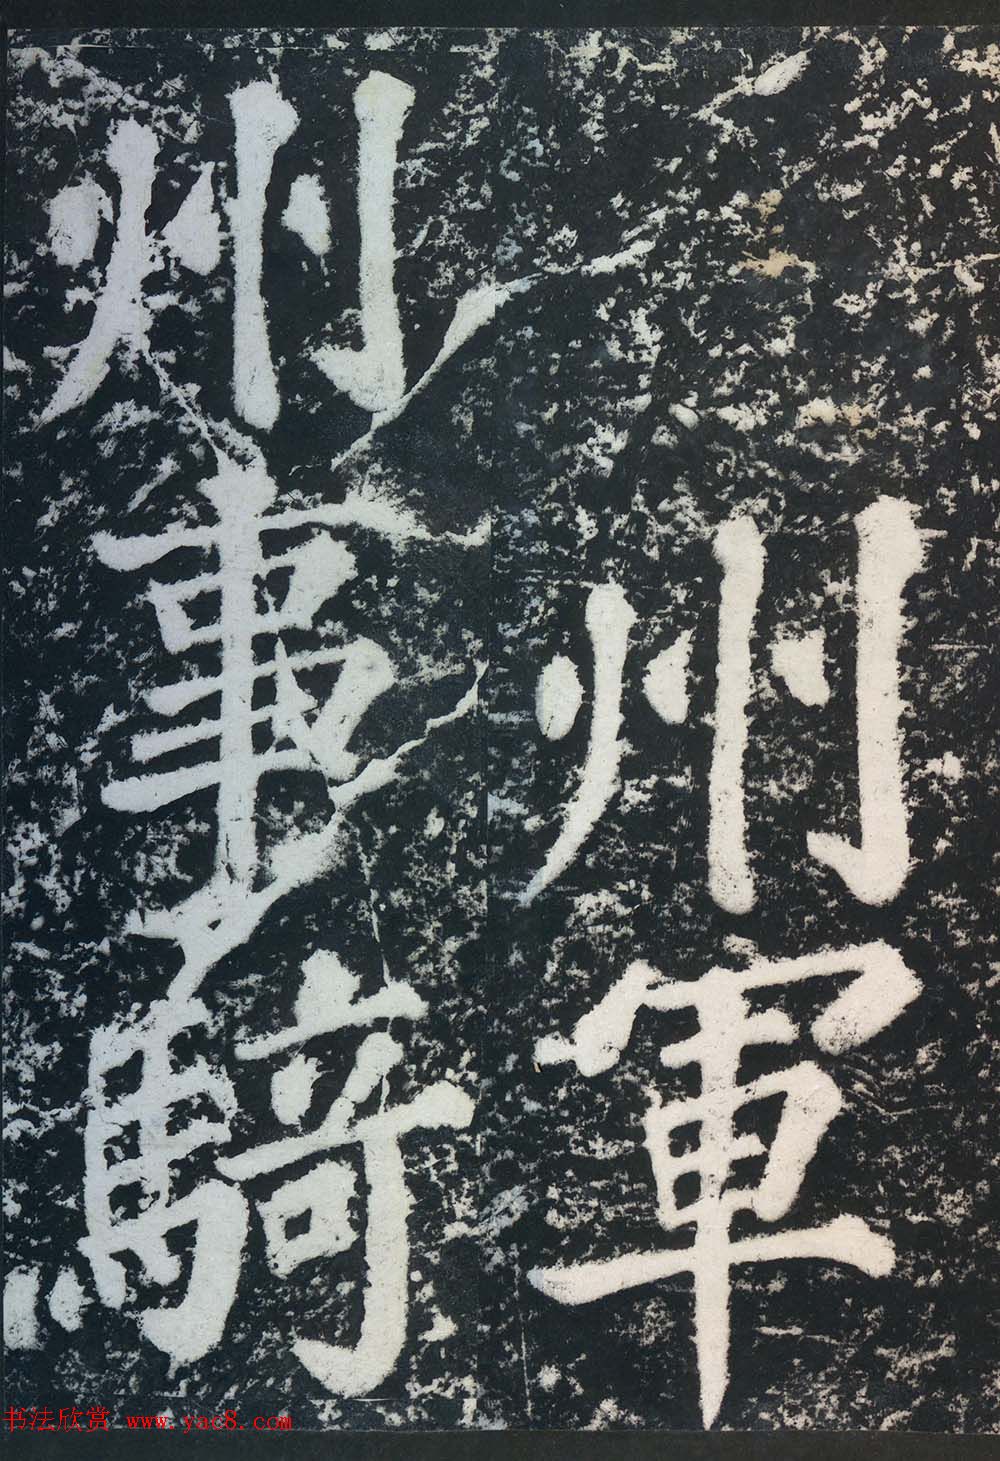 州軍
州事騎
书法欣赏 www.yac8.com